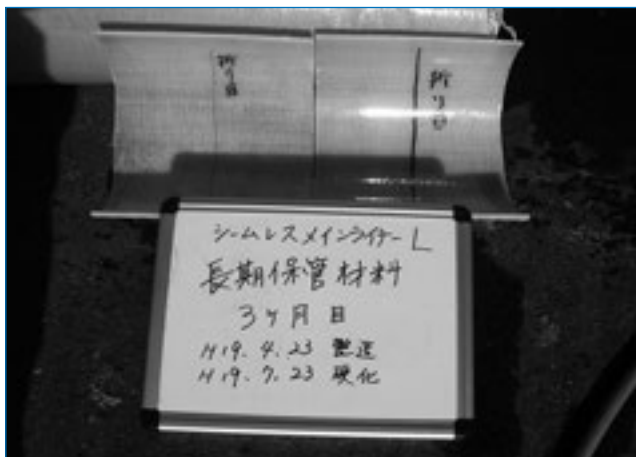 折り目
折り目
シームレスメインライナーL
長期保管材料
3ヶ月目
H19.4.23 製造
H19.7.23 硬化